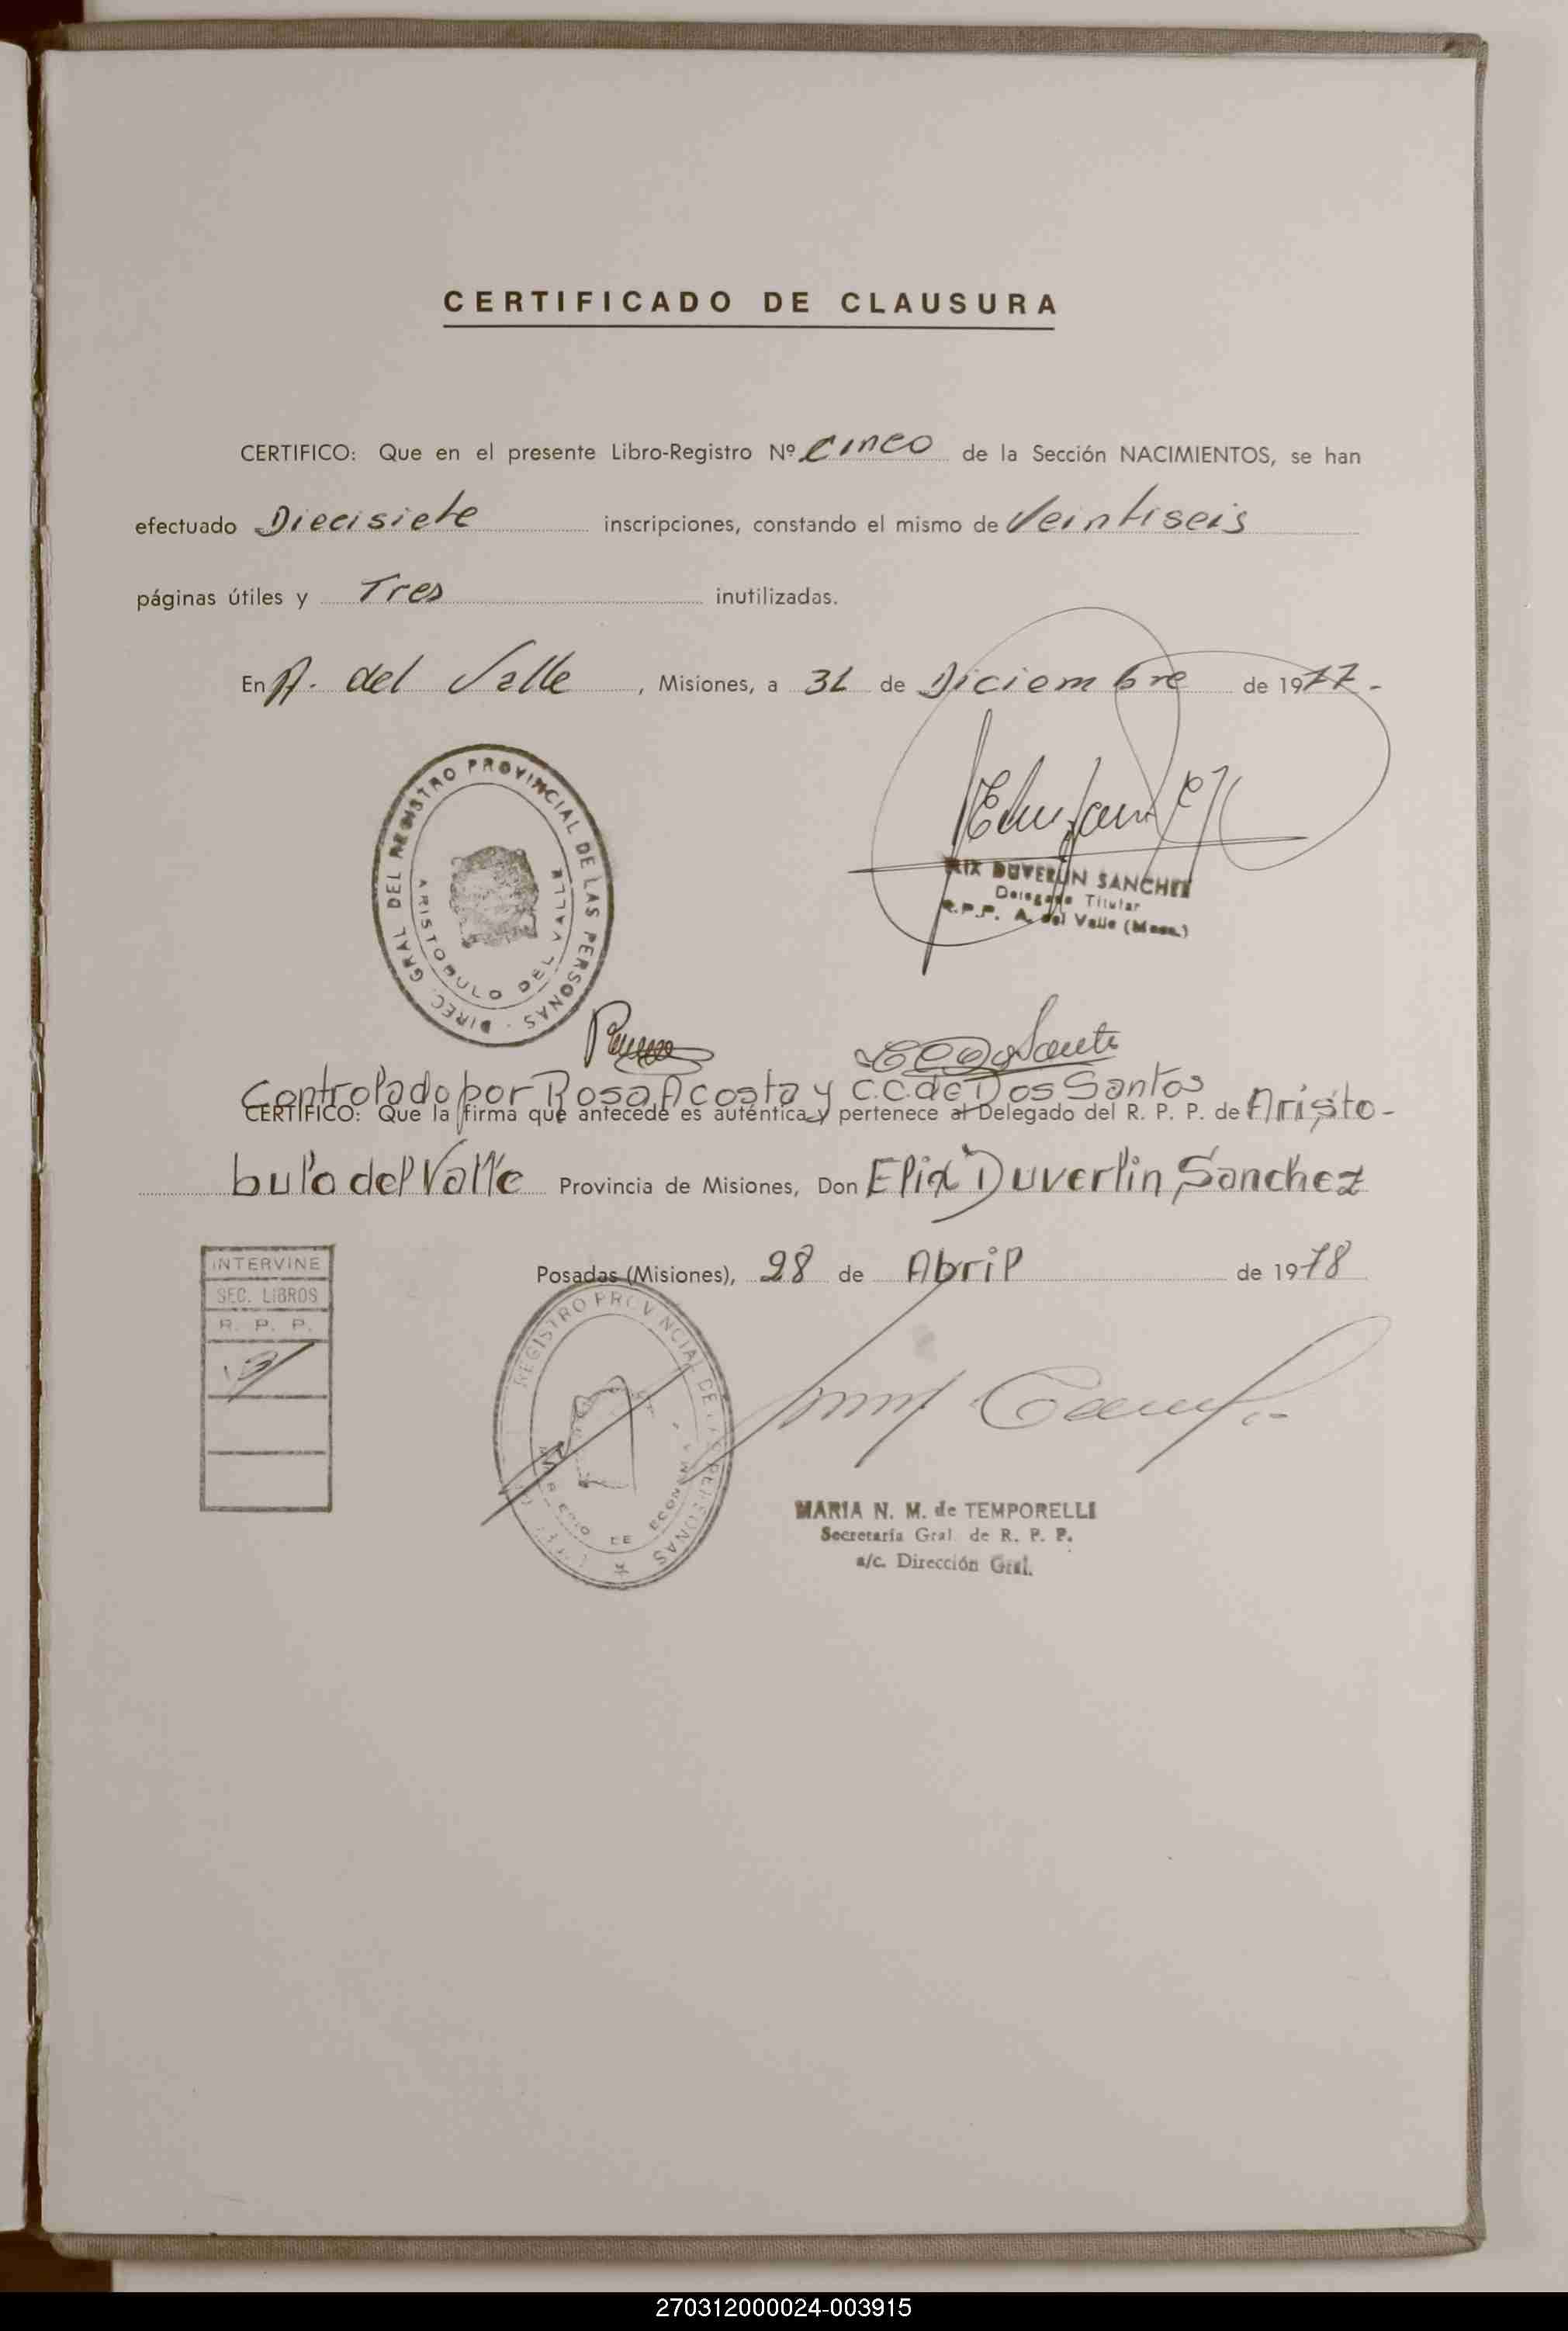 CERTIFICADO DE CLAUSURA
CERTIFICO: Que en el presente Libro-Registro Nº Cinco de la Sección NACIMIENTOS, se han
efectuado Diecisiete inscripciones, constando el mismo de Veintiseis
páginas útiles y Tres inutilizadas.
En A. del Valle, Misiones, a 31 de Diciembre de 1977.-
DIREC. GRAL. DEL REGISTRO PROVINCIAL DE LAS PERSONAS
ARISTOBULO DEL VALLE
DUVERLIN SANCHEZ
Delegado Titular
R.P.P. A. del Valle (Mnes.)
Controlado por Rosa Acosta y C.C. de Dos Santos
CERTIFICO: Que la firma que antecede es auténtica y pertenece al Delegado del R. P. P. de Aristo-
bulo del Valle Provincia de Misiones, Don Elix Duverlin Sanchez
Posadas (Misiones), 28 de Abril de 1978
INTERVINE
SEC. LIBROS
R. P. P.
REGISTRO PROVINCIAL DE LAS PERSONAS
DE ECONOM
MARIA N. M. de TEMPORELLI
Secretaria Gral. de R. P. P.
a/c. Dirección Gral.
270312000024-003915